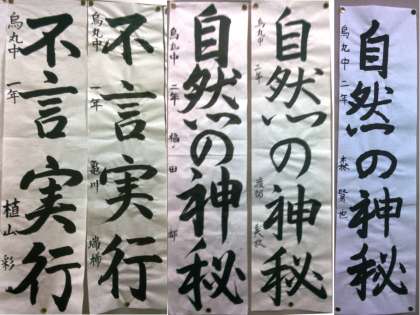 自然の神秘
烏丸中 二年 森
自然の神秘
烏丸中 二年
自然の神秘
烏丸中 二年 福田
不言実行
烏丸中 一年 亀川
不言実行
烏丸中 一年 植山 彩